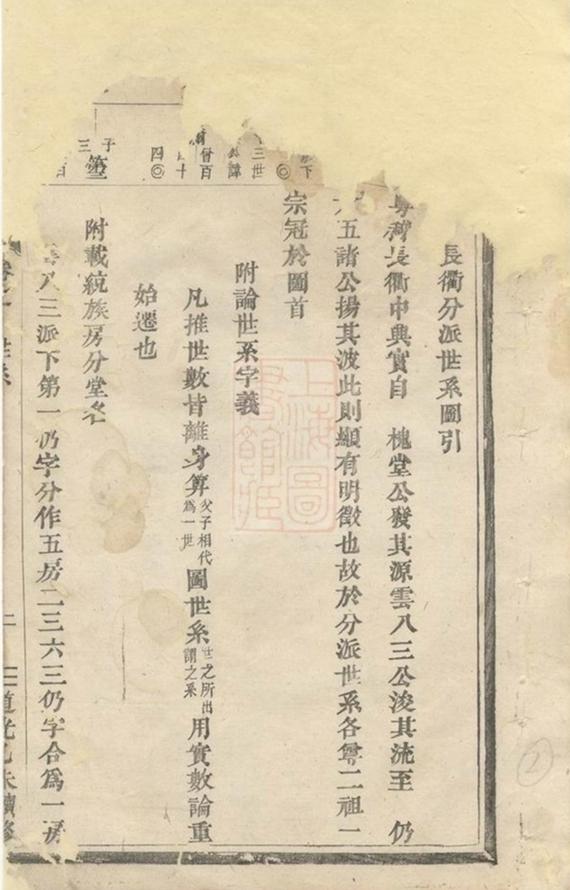 長衢分派世系圖引
長衢中興實自 槐堂公發其源雲八三公浚其流至 仍
五諸公揚其波此則顯有明徵也故於分派世系各尊二祖一
宗冠於圖首
附論世系字義
凡推世數皆離身算父子相代為一世圖世系世之所出謂之系用實數論重
始遷也
附載統族房分堂名
八三派下第一仍字分作五房二三六三仍字合爲一房
道光乙未續修
上海圖書館藏